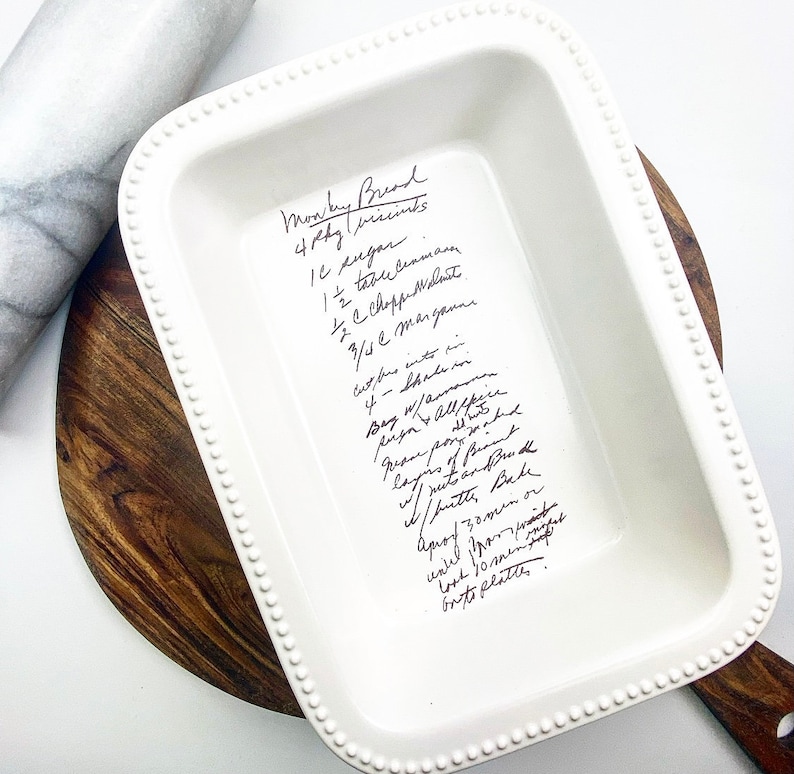 Monkey Bread
4 Pkg biscuits
1 C sugar
1 1/2 table Cinnamon
1/2 C Chopped Walnuts
3/4 C Margarine
cut biscuits in
4 - Shake in
Bag w/ cinnamon
sugar + Allspice
Grease pan add nuts
layers of Biscuit
w/ nuts and Brush
w/ butter Bake
aprox 30 min or
until brown
wait 10 min invert
onto platter.